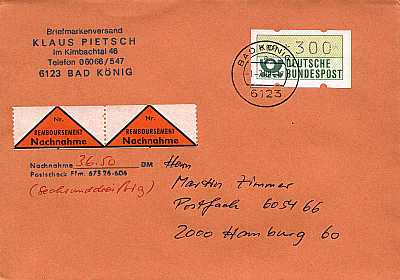 Briefmarkenversand
KLAUS PIETSCH
im Kimbachtal 46
Telefon 06066/547
6123 BAD KÖNIG
300
DEUTSCHE
BUNDESPOST
BAD KÖNIG
6123
Nr.
REMBOURSEMENT
Nachnahme
Nr.
REMBOURSEMENT
Nachnahme
Nachnahme 36.50 DM
Postscheck Ffm. 67326-606
(Sechsunddreißig)
Herrn
Martin Zimmer
Postfach 605466
2000 Hamburg 60